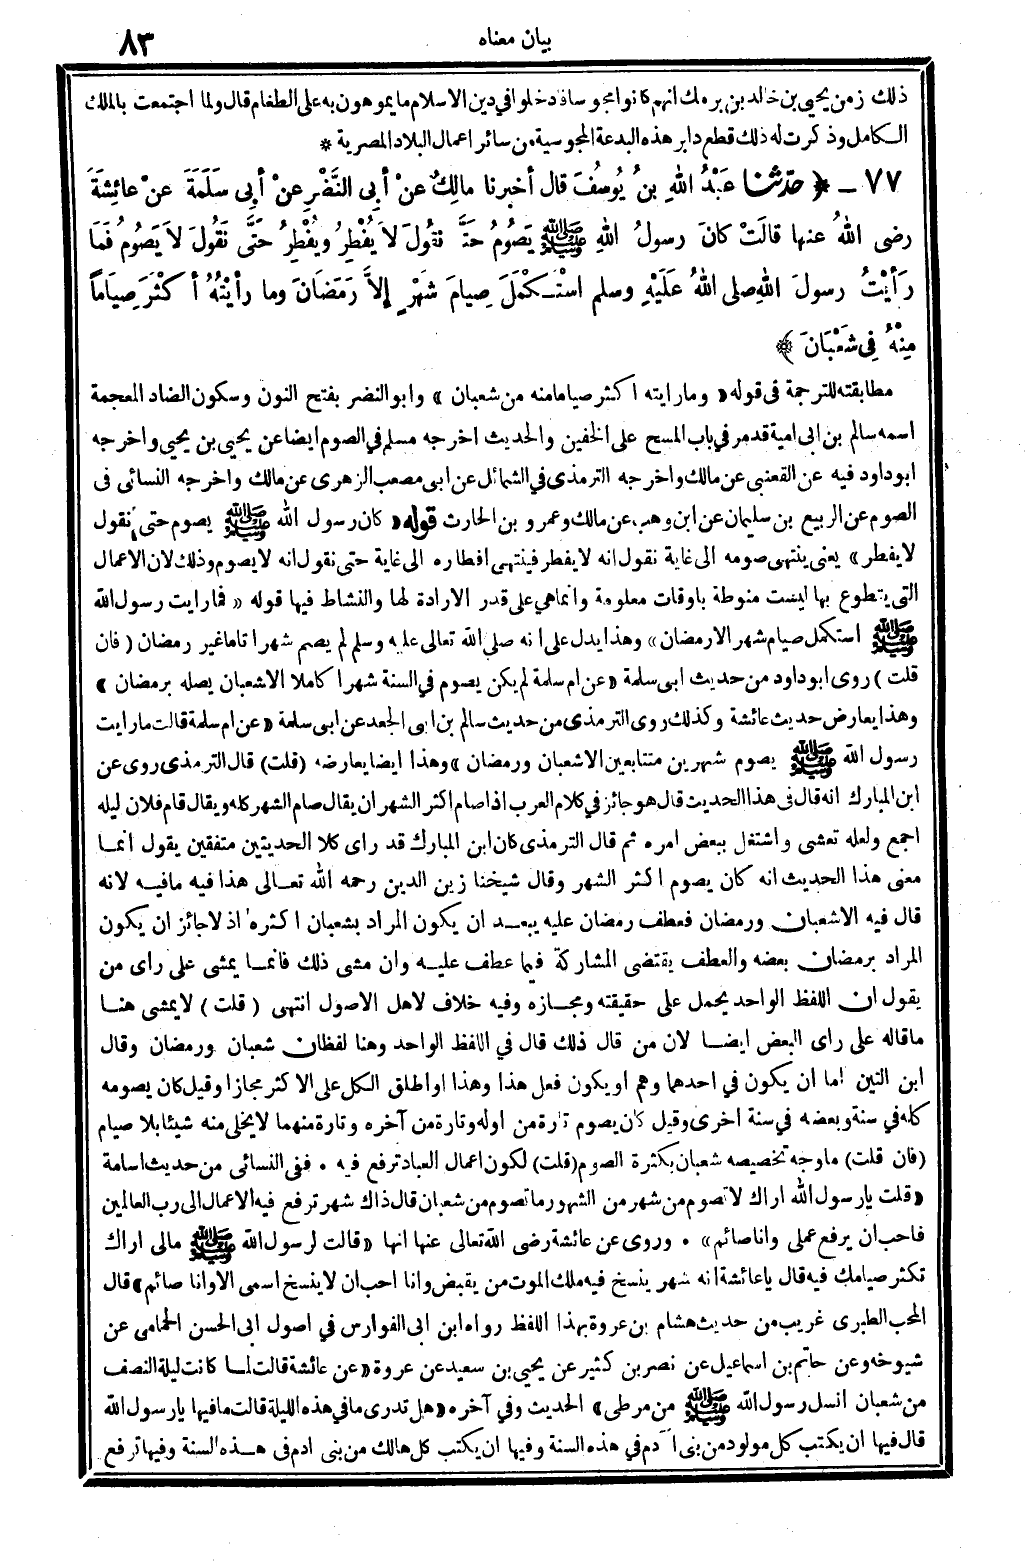 بيان معناه
٨٣
ذلك زمن يحيى بن خالد بن برمك انهم كانوا مجوسا فدخلوا في دين الاسلام ما يموهون به على الطغام قال ولما اجتمعت بالملك
الكامل وذكرت له ذلك قطع دابر هذه البدعة المجوسية من سائر اعمال البلاد المصرية *
٧٧ ــ ﴿ حدثنا عَبْدُ اللهِ بنُ يُوسُفَ قال أخبرنا مالِكٌ عنْ أبى النَّضْرِ عنْ أبِى سَلَمَةَ عنْ عائِشَةَ
رضى اللهُ عنها قالَتْ كانَ رسولُ اللهِ ﷺ يَصُومُ حتَّى نَقُولَ لاَ يُفْطِرُ ويُفْطِرُ حَتَّى نَقُولَ لاَ يَصُومُ فَمَا
رَأيْتُ رسولَ اللهِ صلى اللهُ عَلَيْهِ وسلم اسْتَـكْمَلَ صِيامَ شَهْرٍ إلاَّ رَمَضَانَ وما رأيْتُهُ أ كْثَرَ صِيَاماً
مِنْهُ فِى شَعْبَانَ ﴾
مطابقته للترجمة فى قوله « وما رايته اكثر صياما منه من شعبان » وابو النضر بفتح النون وسكون الضاد المعجمة
اسمه سالم بن ابى امية قدمر في باب المسح على الخفين والحديث اخرجه مسلم في الصوم ايضا عن يحيى بن يحيى واخرجه
ابو داود فيه عن القعنبى عن مالك واخرجه الترمذى في الشمائل عن ابى مصعب الزهرى عن مالك واخرجه النسائى فى
الصوم عن الربيع بن سليمان عن ابن وهب عن مالك وعمرو بن الحارث قوله « كان رسول الله ﷺ يصوم حتى نقول
لا يفطر » يعنى ينتهى صومه الى غاية نقول انه لا يفطر فينتهى افطاره الى غاية حتى نقول انه لا يصوم وذلك لان الاعمال
التى يتطوع بها ليست منوطة باوقات معلومة وانماهي على قدر الارادة لها والنشاط فيها قوله « فما رايت رسول الله
ﷺ استكمل صيام شهر الا رمضان » وهذا يدل على انه صلى الله تعالى عليه وسلم لم يصم شهرا تاما غير رمضان ( فان
قلت ) روى ابو داود من حديث ابى سلمة « عن ام سلمة لم يكن يصوم في السنة شهرا كاملا الا شعبان يصله برمضان »
وهذا يعارض حديث عائشة وكذلك روى الترمذى من حديث سالم بن ابى الجعد عن ابى سلمة « عن ام سلمة قالت ما رايت
رسول الله ﷺ يصوم شهرين متتابعين الا شعبان ورمضان » وهذا ايضا يعارضه (قلت) قال الترمذى روى عن
ابن المبارك انه قال فى هذا الحديث قال هو جائز في كلام العرب اذا صام اكثر الشهر ان يقال صام الشهر كله ويقال قام فلان ليله
اجمع ولعله تعشى واشتغل ببعض امره ثم قال الترمذى كان ابن المبارك قد راى كلا الحديثين متفقين يقول انمـا
معنى هذا الحديث انه كان يصوم اكثر الشهر وقال شيخنا زين الدين رحمه الله تعـالى هذا فيه مافيـه لانه
قال فيه الا شعبان ورمضان فعطف رمضان عليه يبعـد ان يكون المراد بشعبان اكثره اذ لا جائز ان يكون
المراد برمضان بعضه والعطف يقتضى المشاركة فيما عطف عليـه وان مشى ذلك فانمـا يمشى على راى من
يقول ان اللفظ الواحد يحمل على حقيقته ومجـازه وفيه خلاف لاهل الاصول انتهى ( قلت ) لا يمشى هنـا
ماقاله على راى البعض ايضـا لان من قال ذلك قال في اللفظ الواحد وهنا لفظان شعبان ورمضان وقال
ابن التين اما ان يكون في احدهما وهم او يكون فعل هذا وهذا او اطلق الكل على الاكثر مجازا وقيل كان يصومه
كله في سنة وبعضه في سنة اخرى وقيل كان يصوم تارة من اوله وتارة من آخره وتارة منهما لا يخلى منه شيئا بلا صيام
(فان قلت) ما وجه تخصيصه شعبان بكثرة الصوم (قلت) لكون اعمال العباد ترفع فيه • ففى النسائى من حديث اسامة
« قلت يارسول الله اراك لا تصوم من شهر من الشهور ما تصوم من شعبان قال ذاك شهر ترفع فيه الاعمال الى رب العالمين
فاحب ان يرفع عملى وانا صائم » • وروى عن عائشة رضى الله تعالى عنها انها « قالت لرسول الله ﷺ مالى اراك
تكثر صيامك فيه قال يا عائشة انه شهر ينسخ فيه ملك الموت من يقبض وانا احب ان لا ينسخ اسمى الا وانا صائم » قال
المحب الطبرى غريب من حديث هشام بن عروة بهذا اللفظ رواه ابن ابى الفوارس في اصول ابى الحسن الحمامى عن
شيوخه وعن حاتم بن اسماعيل عن نصر بن كثير عن يحيى بن سعيد عن عروة « عن عائشة قالت لمـا كانت ليلة النصف
من شعبان انسل رسول الله ﷺ من مرطى » الحديث وفي آخره « هل تدرى ما في هذه الليلة قالت ما فيها يارسول الله
قال فيها ان يكتب كل مولود من بنى آدم في هذه السنة وفيها ان يكتب كل هالك من بنى ادم فى هـذه السنة وفيها ترفع